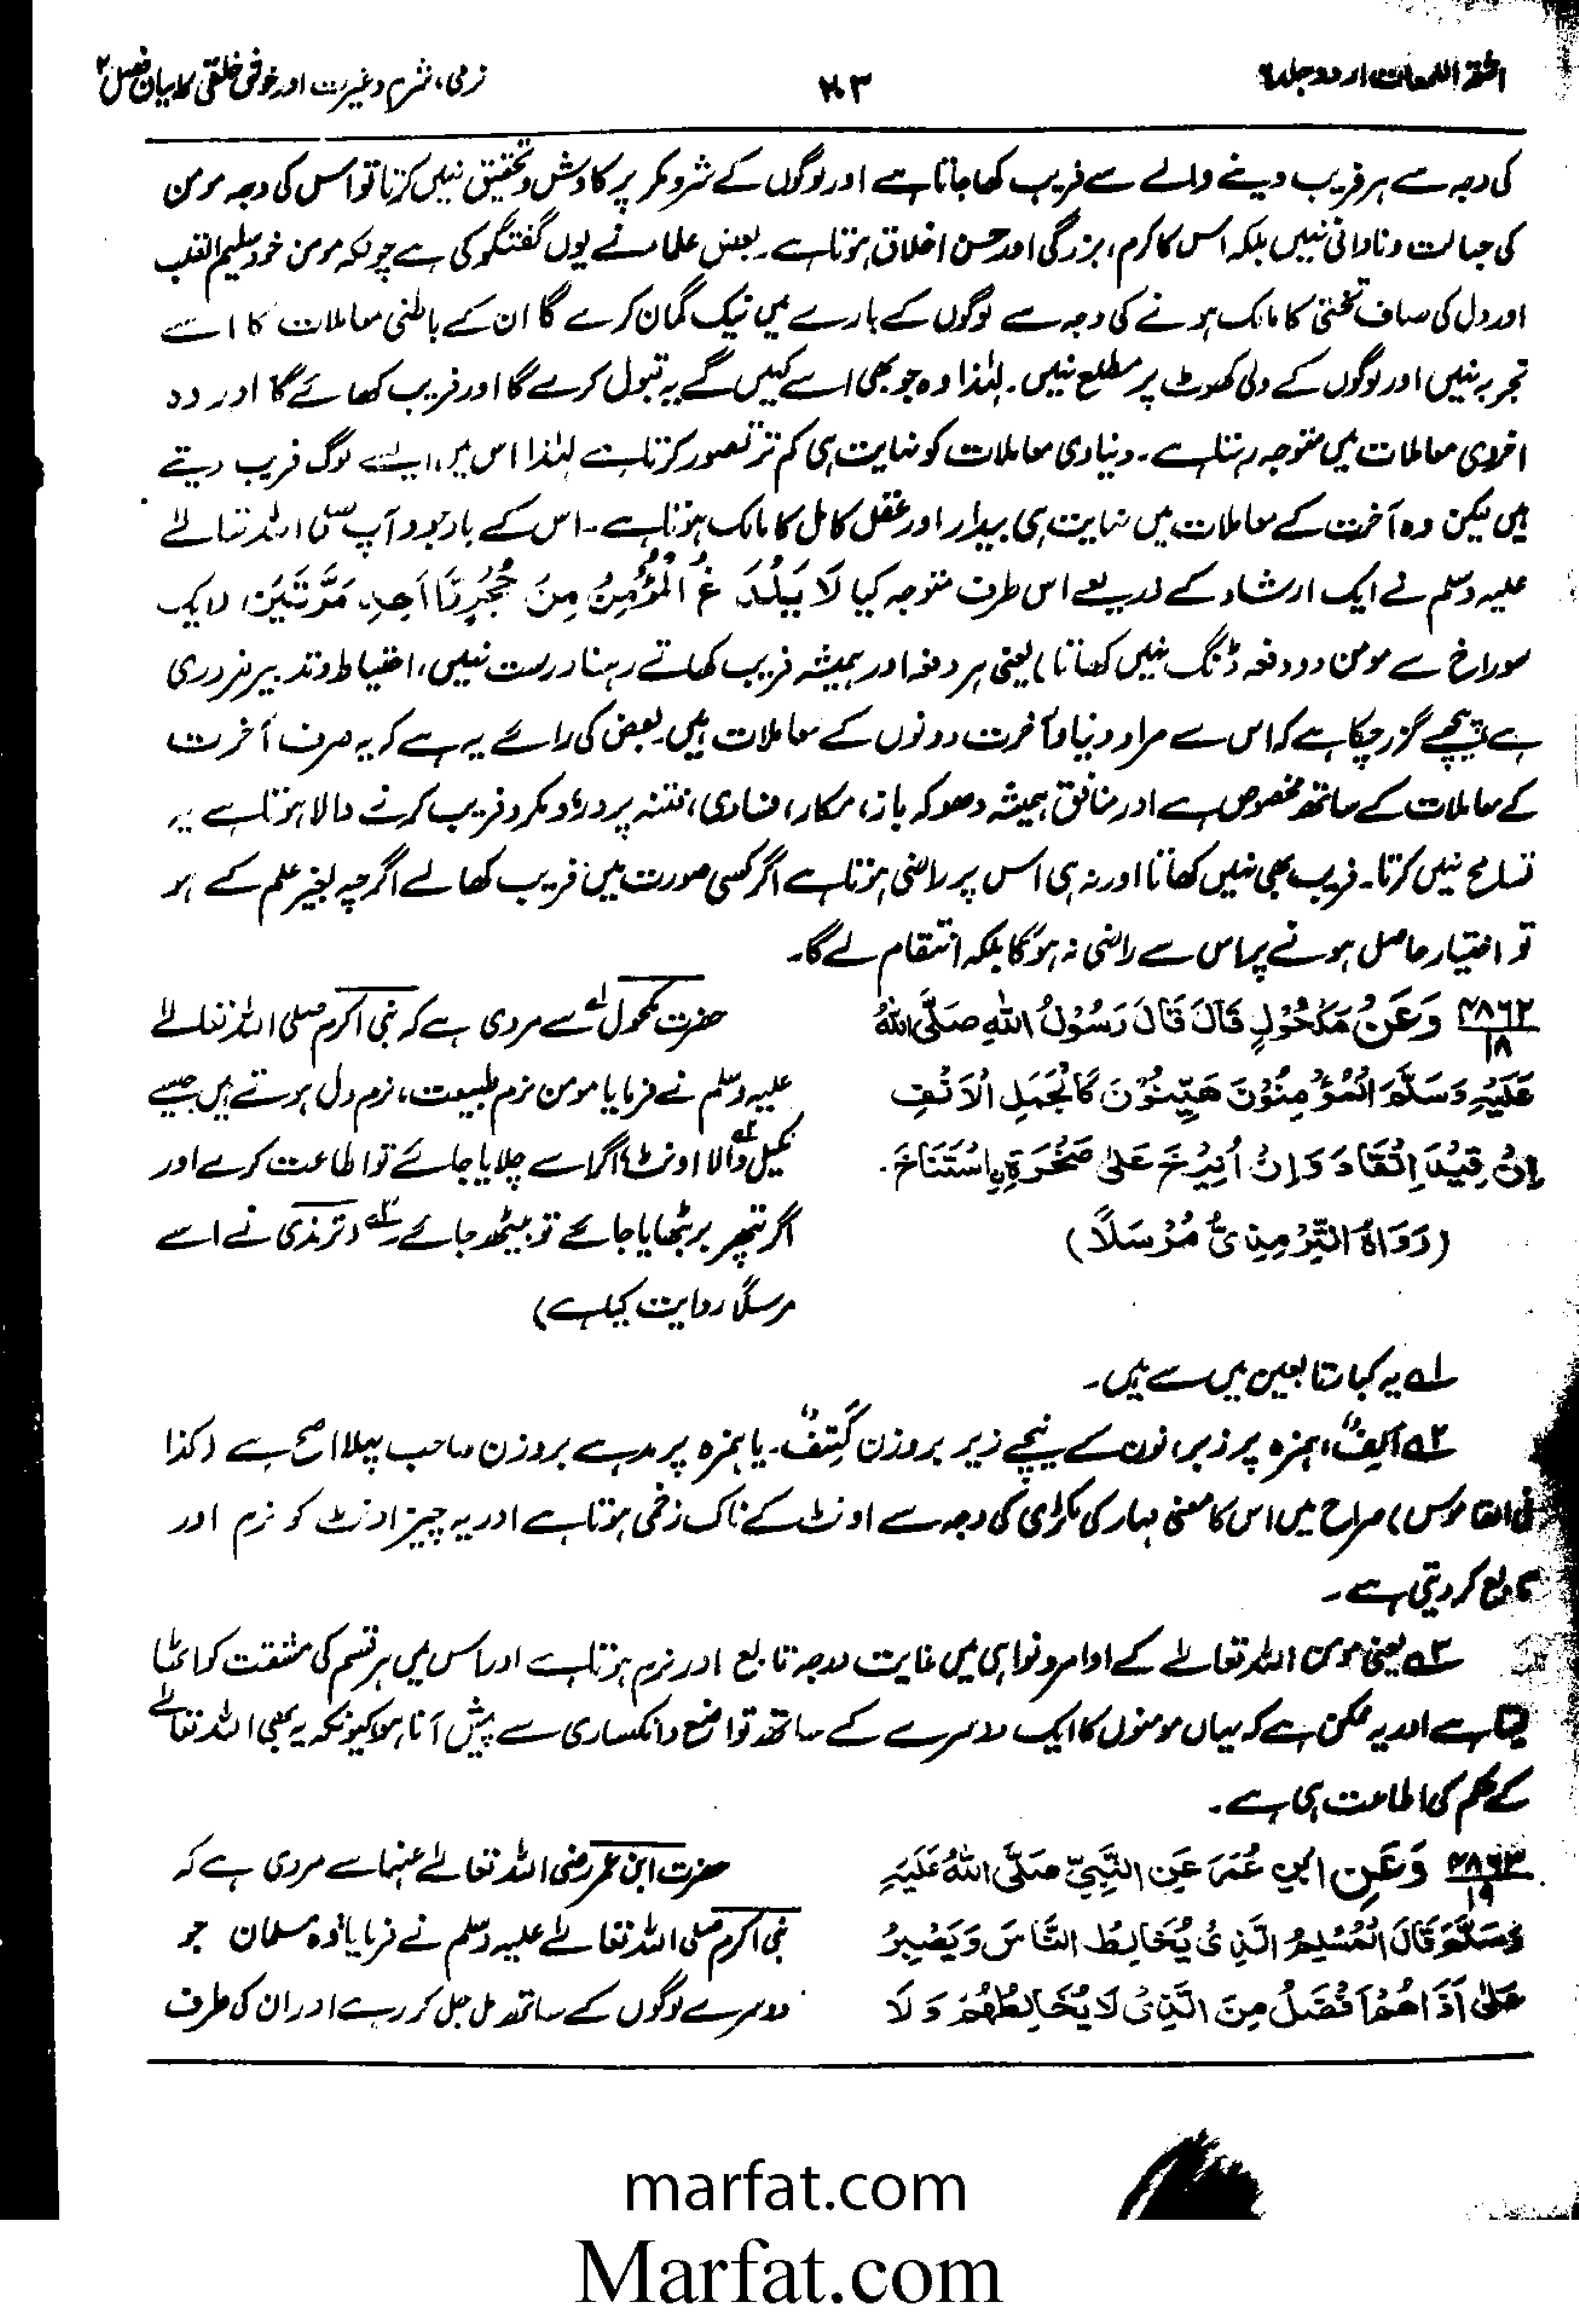 اشعۃ اللمعات اردو جلد ۶
۲۰۳
نرمی، شرم و غیرت اور خوش خلقی کا بیان فصل ۲
کی وجہ سے ہر فریب دینے والے سے فریب کھا جاتا ہے اور لوگوں کے شر و مکر پر کاوش و تحقیق نہیں کرتا تو اس کی وجہ مومن
کی جہالت و نادانی نہیں بلکہ اس کا کرم، بزرگی اور حسن اخلاق ہوتا ہے۔ بعض علماء نے یوں گفتگو کی ہے چونکہ مومن خود سلیم القلب
اور دل کی صاف تختی کا مالک ہونے کی وجہ سے لوگوں کے بارے میں نیک گمان کرے گا ان کے باطنی معاملات کا اسے
تجربہ نہیں اور لوگوں کے دلی کھوٹ پر مطلع نہیں۔ لہٰذا وہ جو بھی اسے کہیں گے یہ قبول کرے گا اور فریب کھائے گا اور وہ
اخروی معاملات میں متوجہ رہتا ہے۔ دنیاوی معاملات کو نہایت ہی کم تر تصور کرتا ہے لہٰذا اس میں اسے لوگ فریب دیتے
ہیں لیکن وہ آخرت کے معاملات میں نہایت ہی بیدار اور عقل کامل کا مالک ہوتا ہے۔ اس کے باوجود آپ صلی اللہ تعالےٰ
علیہ وسلم نے ایک ارشاد کے ذریعے اس طرف متوجہ کیا لَا يُلْدَغُ الْمُؤْمِنُ مِنَ جُحْرٍ وَّاحِدٍ مَرَّتَيْنِ (ایک
سوراخ سے مومن دو دفعہ ڈنگ نہیں کھاتا) یعنی ہر دفعہ اور ہمیشہ فریب کھاتے رہنا درست نہیں، احتیاط و تدبیر ضروری
ہے پیچھے گزر چکا ہے کہ اس سے مراد دنیا و آخرت دونوں کے معاملات ہیں۔ بعض کی رائے یہ ہے کہ یہ صرف آخرت
کے معاملات کے ساتھ مخصوص ہے اور منافق ہمیشہ دھوکہ باز، مکار، فسادی، فتنہ پرور، و مکر و فریب کرنے والا ہوتا ہے یہ
تسامح نہیں کرتا۔ فریب بھی نہیں کھاتا اور نہ ہی اس پر راضی ہوتا ہے اگر کسی صورت میں فریب کھا لے اگرچہ بغیر علم کے ہو
تو اختیار حاصل ہونے پر اس سے راضی نہ ہوگا بلکہ انتقام لے گا۔
۴۸۶۲/۱۸ وَعَنْ مَكْحُوْلٍ قَالَ قَالَ رَسُوْلُ اللهِ صَلَّى اللهُ
عَلَيْهِ وَسَلَّمَ الْمُؤْمِنُوْنَ هَيِّنُوْنَ كَالْجَمَلِ الْاَنِفِ
اِنْ قِيْدَ اِنْقَادَ وَاِنْ اُنِيْخَ عَلٰى صَخْرَةٍ اِسْتَنَاخَ۔
(رَوَاهُ التِّرْمِذِىُّ مُرْسَلًا)
حضرت مکحول۱ سے مروی ہے کہ نبی اکرم صلی اللہ تعالےٰ
علیہ وسلم نے فرمایا مومن نرم طبیعت، نرم دل ہوتے ہیں جیسے
نکیل والا۲ اونٹ اگر اسے چلایا جائے تو اطاعت کرے اور
اگر پتھر پر بٹھایا جائے تو بیٹھ جائے۳ (ترمذی نے اسے
مرسلًا روایت کیا ہے)
۱ یہ کبار تابعین میں سے ہیں۔
۲ اَنِفٌ، ہمزہ پر زبر، نون کے نیچے زیر بروزن کَتِفٌ۔ یا ہمزہ پر مد ہے بروزن صاحب پہلا اصح ہے (کذا
فی القاموس) صراح میں اس کا معنی مہار کی لکڑی کی وجہ سے اونٹ کے ناک زخمی ہوتا ہے اور یہ چیز اونٹ کو نرم اور
تابع کر دیتی ہے۔
۳ یعنی مومن اللہ تعالےٰ کے اوامر و نواہی میں غایت درجہ تابع اور نرم ہوتا ہے اور اس میں ہر قسم کی مشقت کو اٹھا
لیتا ہے اور یہ ممکن ہے کہ یہاں مومنوں کا ایک دوسرے کے ساتھ تواضع و انکساری سے پیش آنا ہو کیونکہ یہ بھی اللہ تعالےٰ
کے حکم کی اطاعت ہی ہے۔
۴۸۶۳/۱۹ وَعَنِ ابْنِ عُمَرَ عَنِ النَّبِيِّ صَلَّى اللهُ عَلَيْهِ
وَسَلَّمَ قَالَ الْمُسْلِمُ الَّذِىْ يُخَالِطُ النَّاسَ وَيَصْبِرُ
عَلٰى اَذَاهُمْ اَفْضَلُ مِنَ الَّذِىْ لَا يُخَالِطُهُمْ وَلَا
حضرت ابن عمر رضی اللہ تعالےٰ عنہما سے مروی ہے کہ
نبی اکرم صلی اللہ تعالےٰ علیہ وسلم نے فرمایا وہ مسلمان جو
دوسرے لوگوں کے ساتھ مل جل کر رہے اور ان کی طرف
marfat.com
Marfat.com